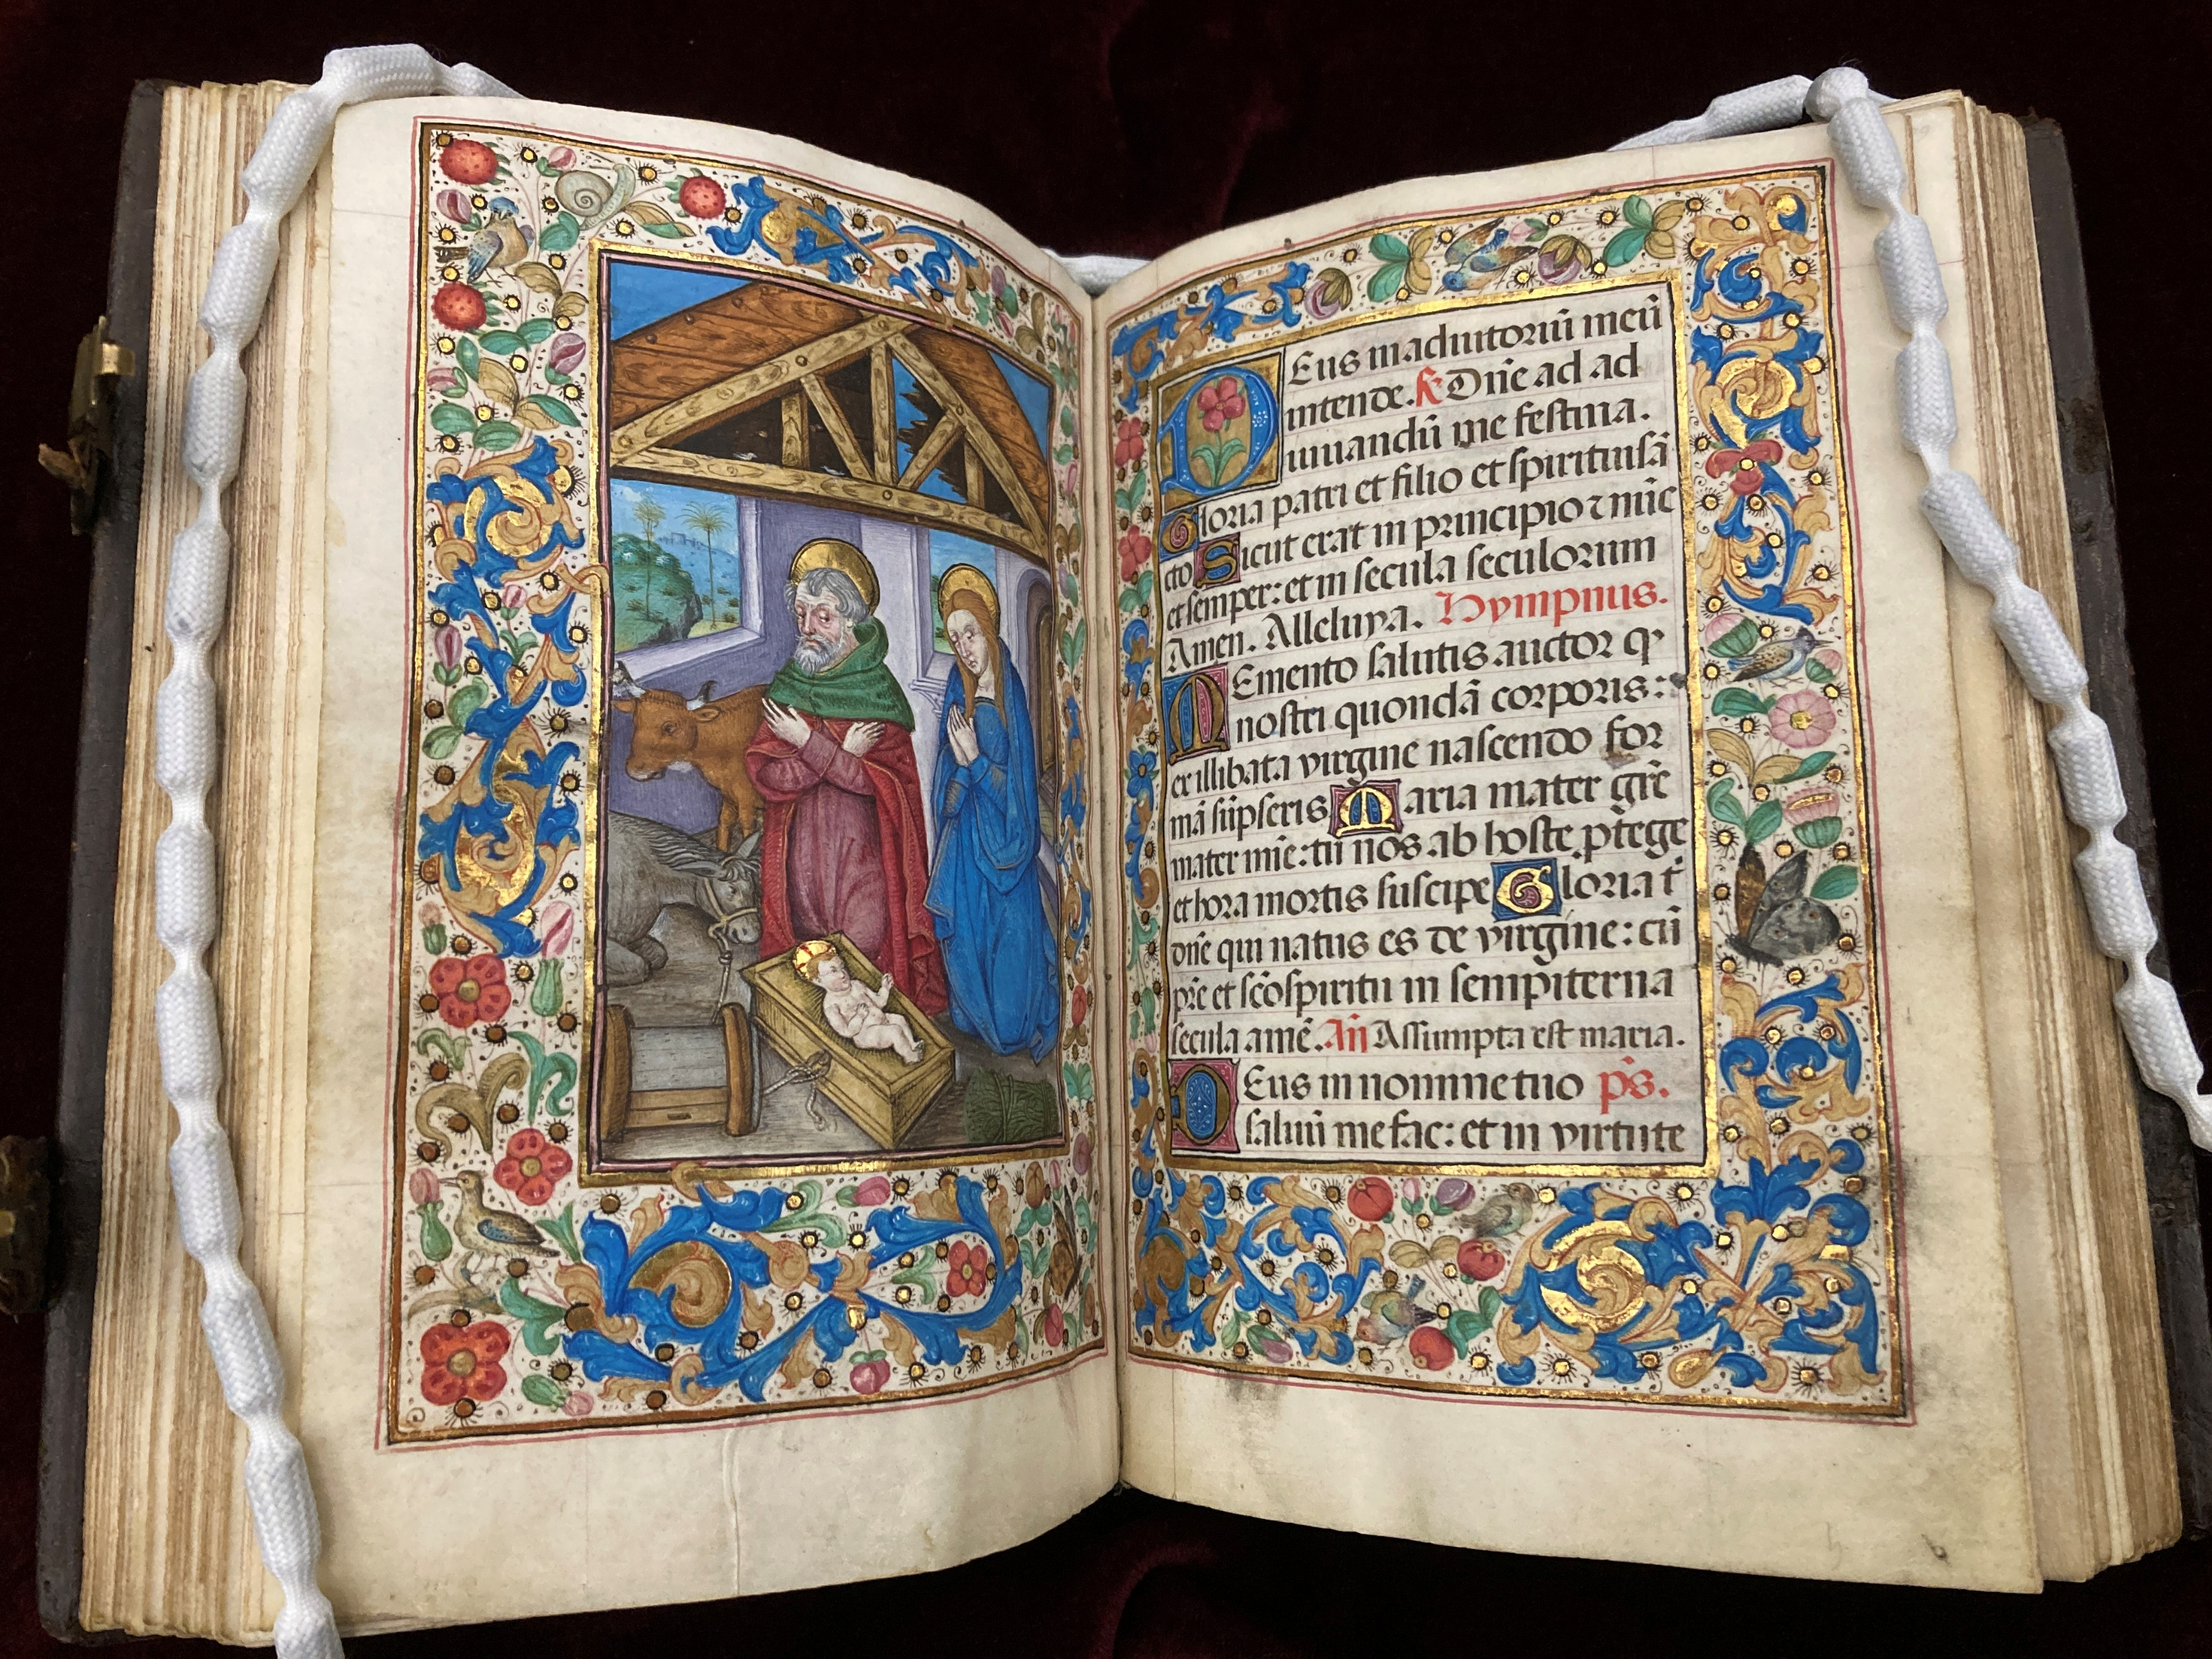 Eus in adiutoriū meū
intende. R̃ Dn̄e ad ad
iuuandū me festina.
Gloria patri et filio et spirituisā
cto Sicut erat in principio ⁊ nūc
et semper: et in secula seculorum
Amen. Alleluya. Hympnus.
MEmento salutis auctor ꝙ
nostri quondā corporis:
ex illibata virgine nascendo for
mā sūpseris Maria mater gr̄e
mater mīe: tu nos ab hoste ꝓtege
et hora mortis suscipe Gloria t̄
dn̄e qui natus es de virgine: cū
pr̄e et sc̄o spiritu in sempiterna
secula amē. An̄ Assumpta est maria.
DEus in nomine tuo p̄s.
saluū me fac: et in virtute